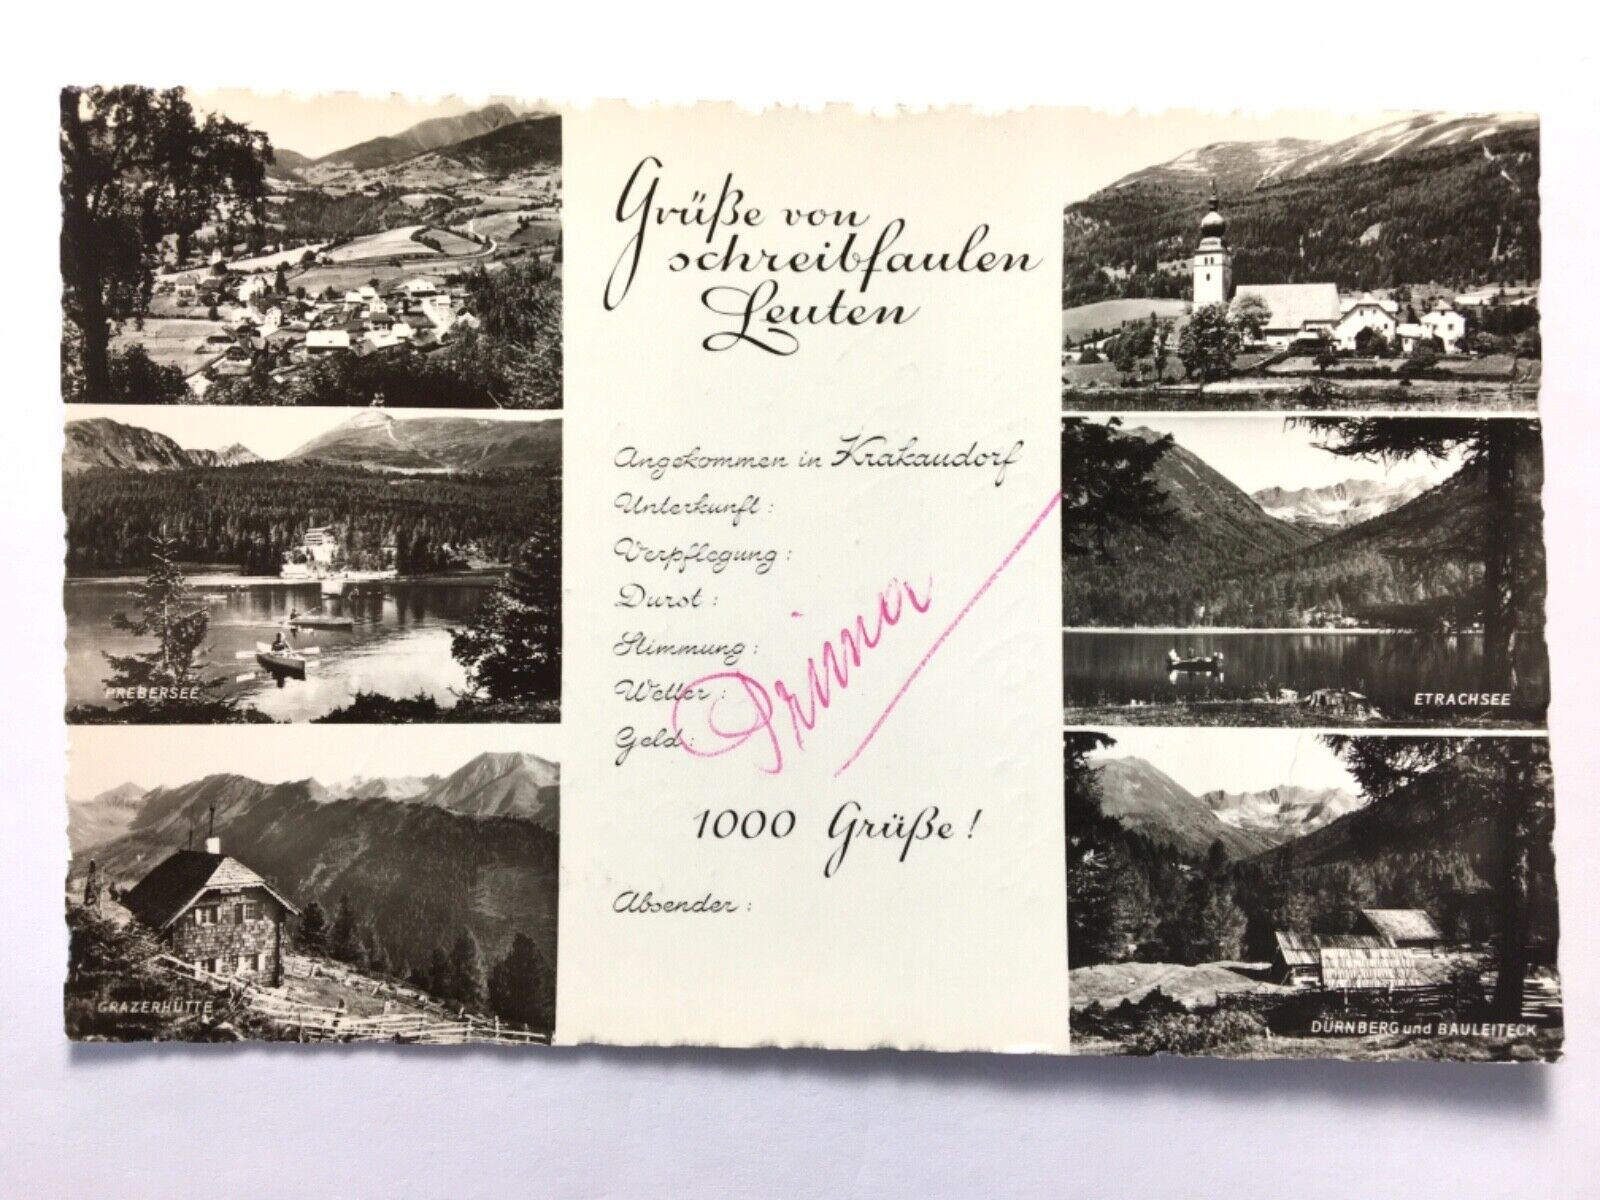 Grüße von
schreibfaulen
Leuten
Angekommen in Krakaudorf
Unterkunft:
Verpflegung:
Durst:
Stimmung:
Wetter:
Geld:
Prima
1000 Grüße!
Absender:
PREBERSEE
GRAZERHÜTTE
ETRACHSEE
DÜRNBERG und BAULEITECK